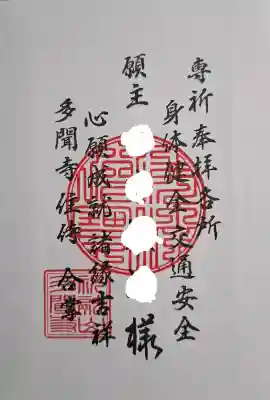 専祈奉拝各所
身体健全交通安全
願主 様
心願成就諸縁吉祥
多聞寺住侍 合掌